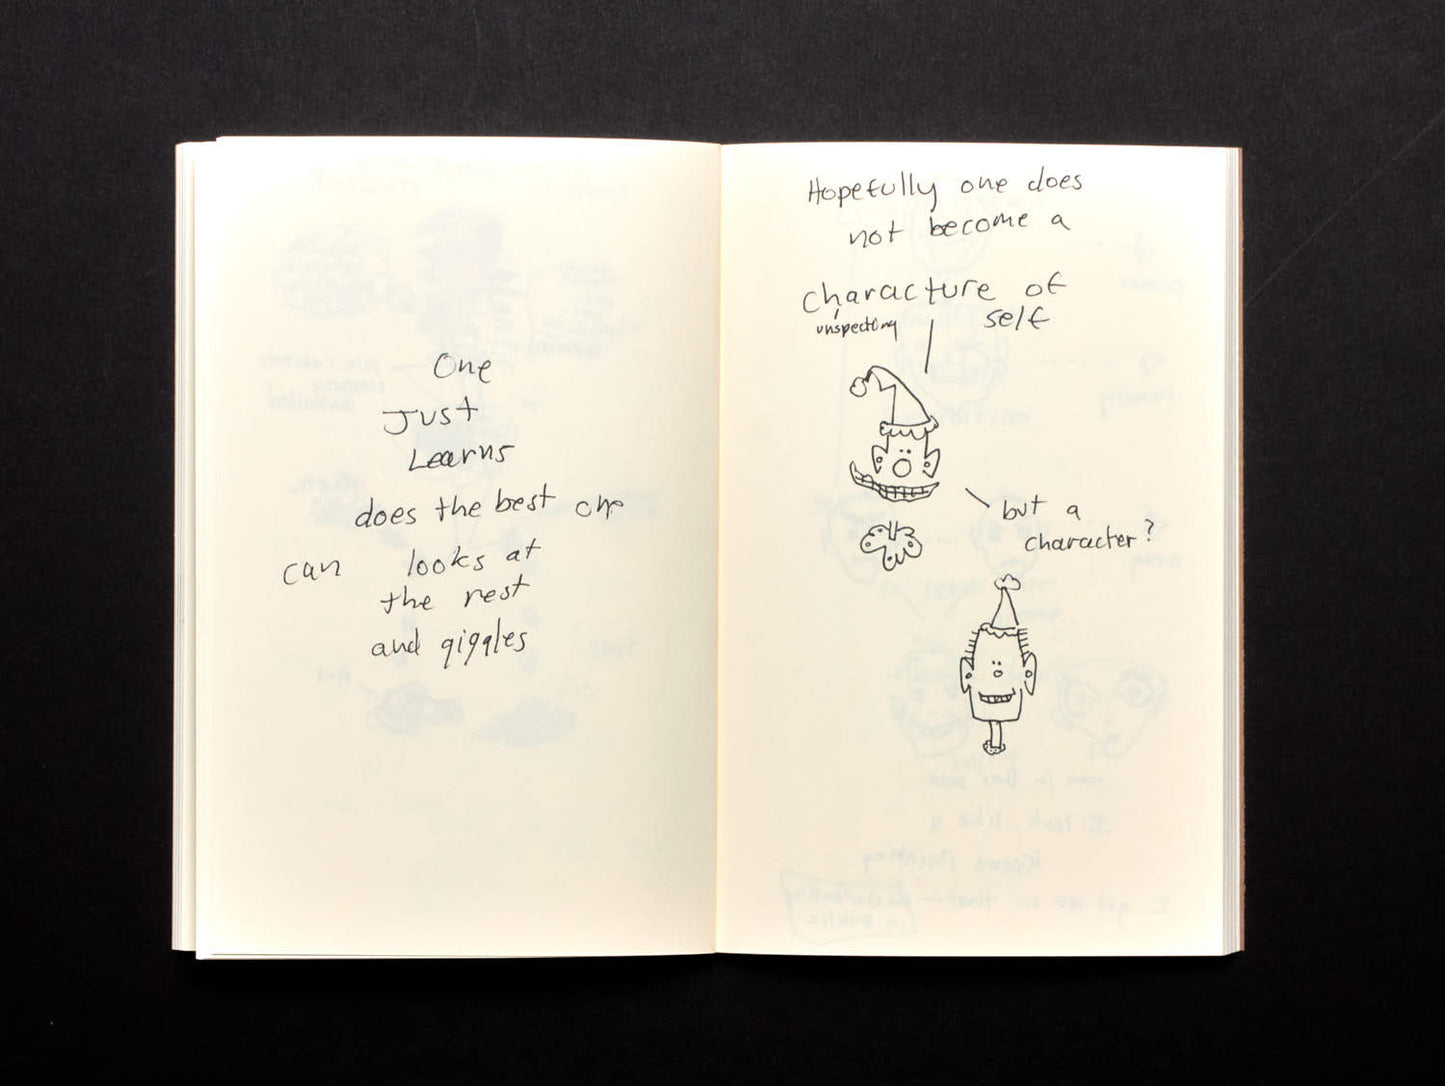 One
Just
Learns
does the best one
can looks at
the rest
and giggles
Hopefully one does
not become a
characture of
unspecting self
but a
character?